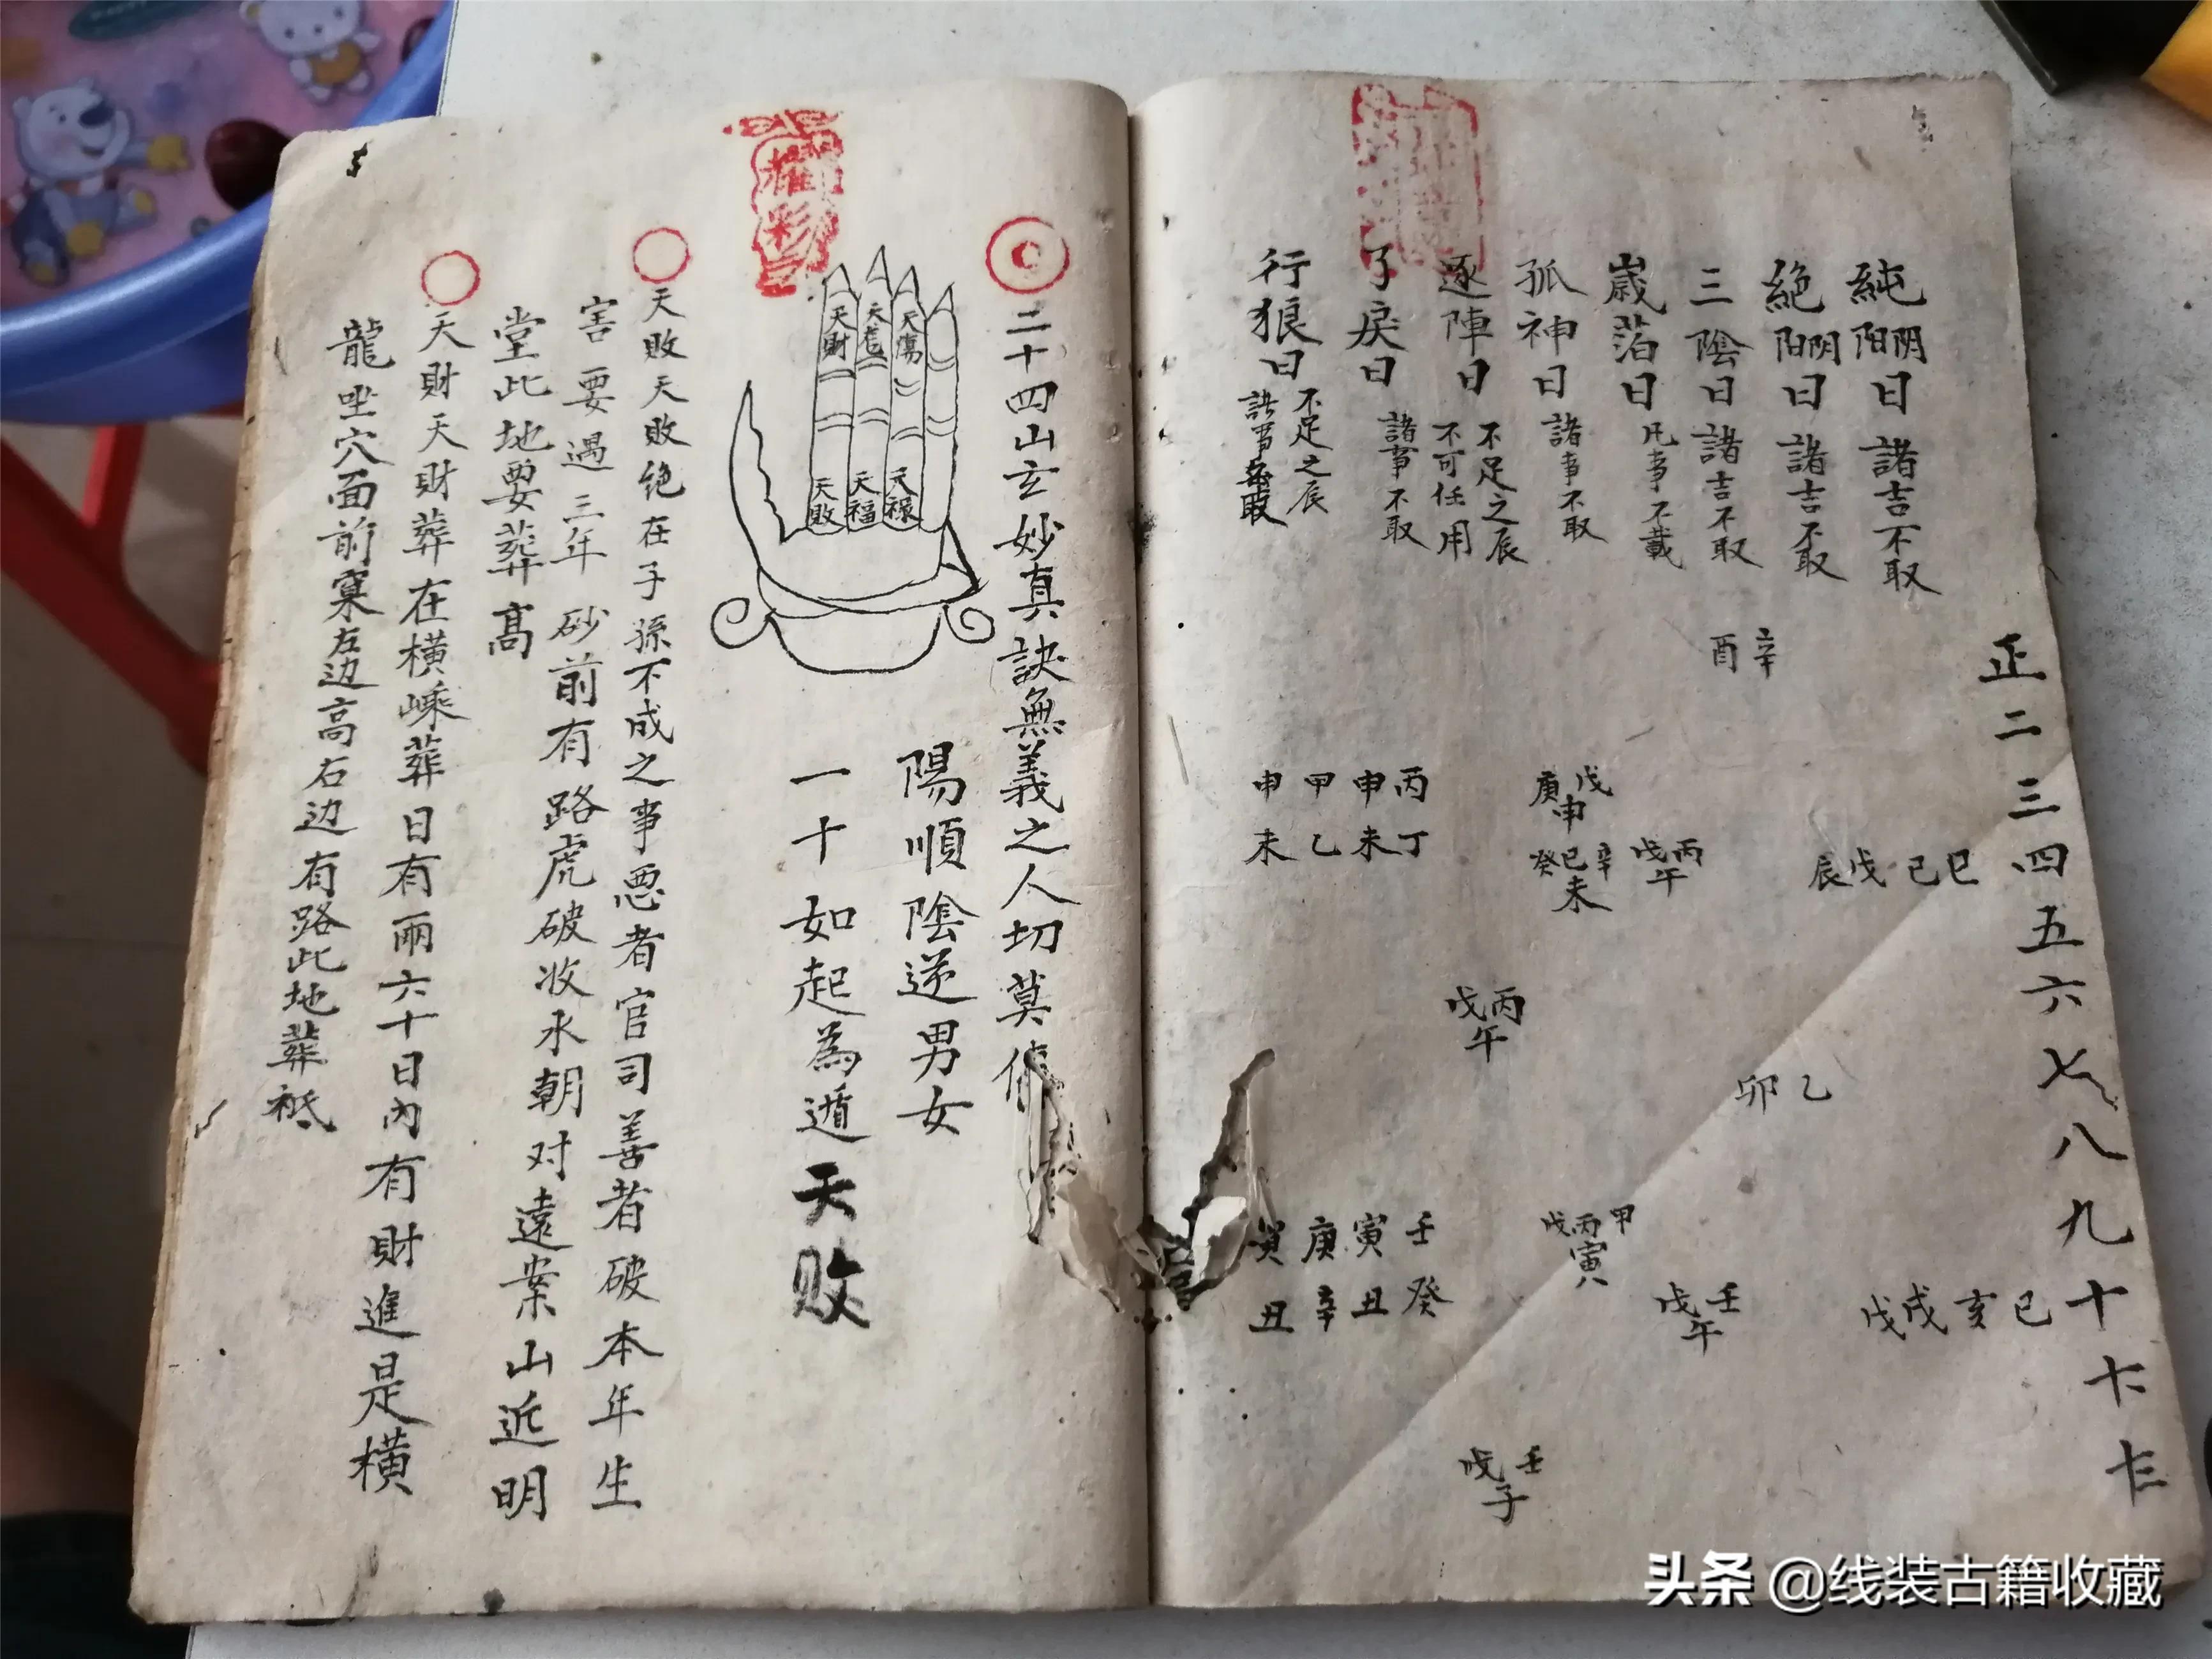 正二三四五六七八九十十一十二
純陽日諸吉不取
絕陽陰日諸吉不取
三陰日諸吉不取
歲箔日凡事不載
孤神日諸事不取
逐陣日不足之辰不可任用
了戾日諸事不取
行狼日不足之辰諸事無取
辛酉
巳己戊辰
丙戊午
戊庚申
辛己癸未
丙丁申未甲乙申未
丙戊午
乙卯
甲丙戊寅
壬癸寅丑庚辛寅丑
己亥戊戌
壬戊午
壬戊子
二十四山玄妙真訣無義之人切莫傳
陽順陰逆男女
一十如起為遁天敗
天財
天瘟
天傷
天敗
天福
天祿
耀彩
天敗天敗绝在子孫不成之事悪者官司善者破本年生
害要遇三年砂前有路虎破收水朝对遠案山近明
堂此地要葬高
天財天財葬在橫嵊葬日有兩六十日內有財進是橫
龍坐穴面前窠左边高右边有路此地葬祇
头条 @线装古籍收藏